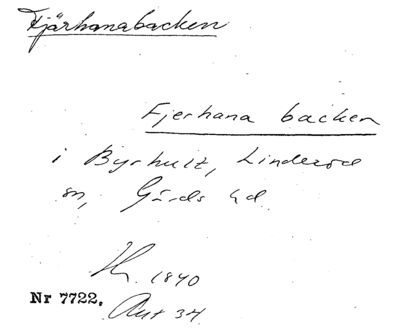 Fjärhanabacken
Fjerhana backen
i Byrhult, Linderöd
sn, Gärds hd
1840
Nr 7722. Ant 34